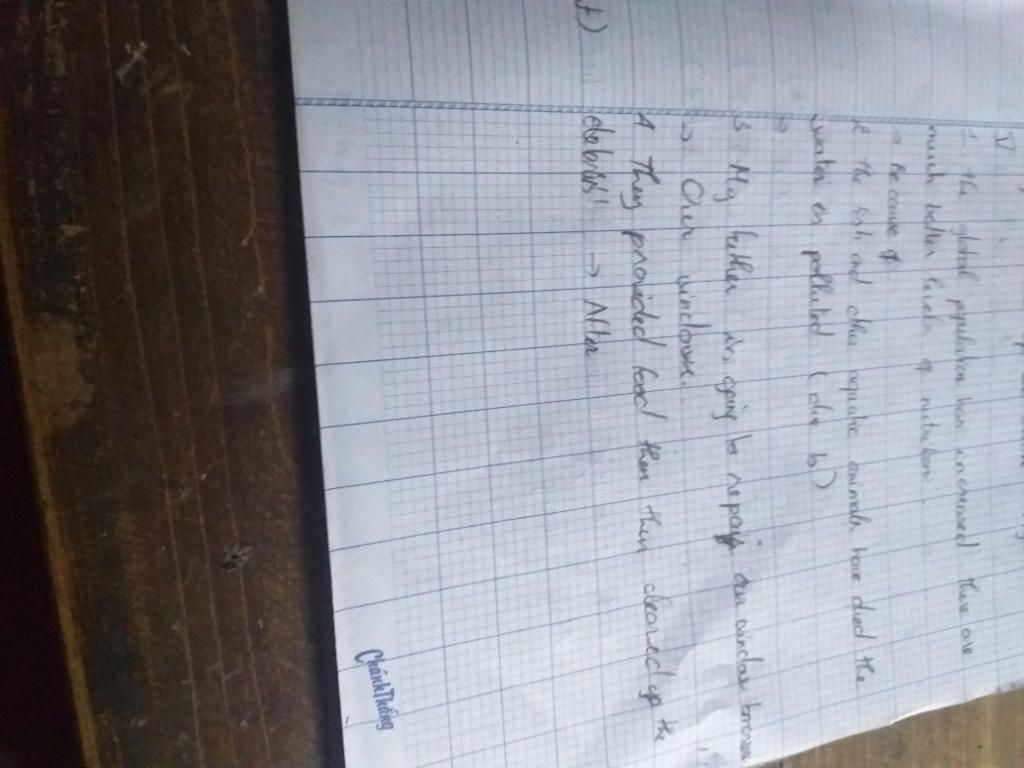 V
1 the global population has increased there are
much better levels of nutrition
→ Because of
2 the fish and other aquatic animals have died the
water is polluted (due to)
→
3 My father is going to repair our window
→ Our windows.
4 They provided food then then cleared up the
debris! → After
ChánhThắng